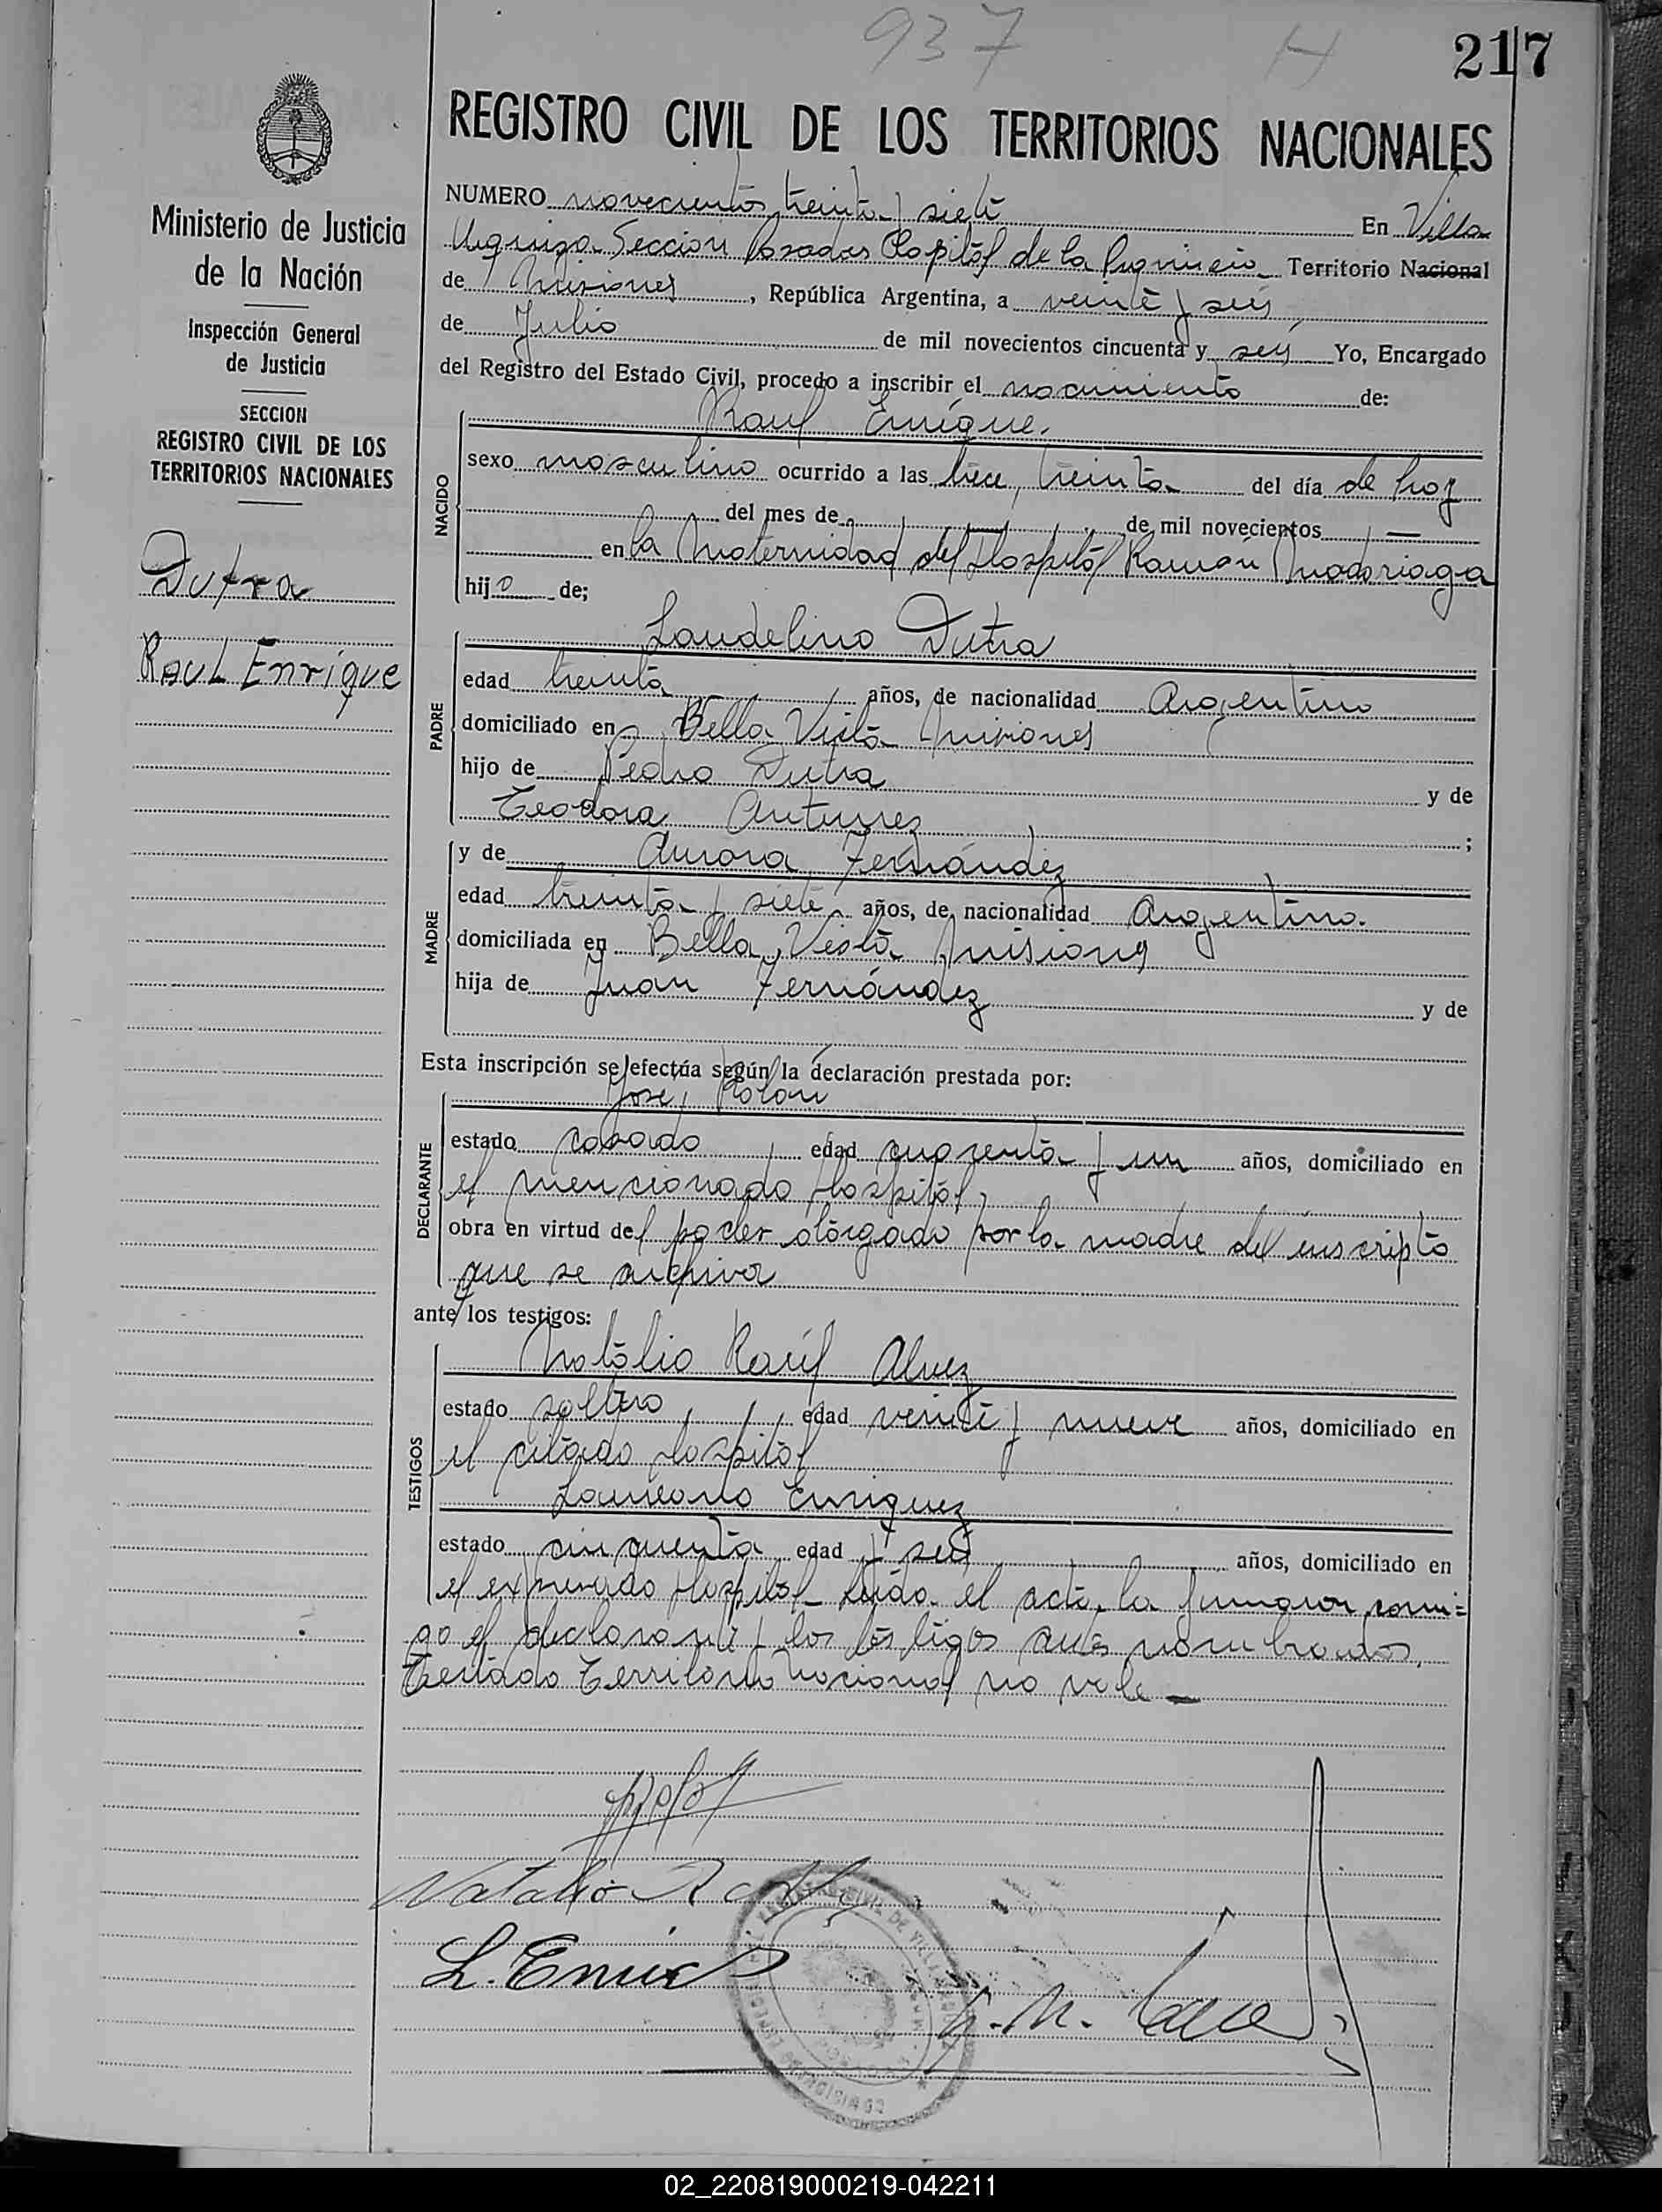 937 H 217
REGISTRO CIVIL DE LOS TERRITORIOS NACIONALES
Ministerio de Justicia
de la Nación
Inspección General
de Justicia
SECCION
REGISTRO CIVIL DE LOS
TERRITORIOS NACIONALES
Dutra
Raul Enrique
NUMERO novecientos treinta y siete En Villa
Urquiza Sección Posadas Capital de la Provincia Territorio Nacional
de Misiones, República Argentina, a veinte y seis
de Julio de mil novecientos cincuenta y seis Yo, Encargado
del Registro del Estado Civil, procedo a inscribir el nacimiento de:
NACIDO
Raul Enrique.
sexo masculino ocurrido a las trece, treinta del día de hoy
del mes de de mil novecientos
en la Maternidad del Hospital Ramón Madariaga
hijo de;
PADRE
Laudelino Dutra
edad treinta años, de nacionalidad Argentino
domiciliado en Bella Vista Misiones
hijo de Pedro Dutra y de
Teodora Antunez ;
MADRE
y de Aurora Fernández
edad treinta y siete años, de nacionalidad Argentina.
domiciliada en Bella Vista Misiones
hija de Juan Fernández y de
Esta inscripción se efectúa según la declaración prestada por:
DECLARANTE
José Rolón
estado casado edad cuarenta y un años, domiciliado en
el mencionado Hospital,
obra en virtud del poder otorgado por la madre del inscripto
que se archiva
ante los testigos:
TESTIGOS
Natalio Raúl Alvez
estado soltero edad veinte y nueve años, domiciliado en
el citado Hospital
Laureano Enriquez
estado cincuenta edad y seis años, domiciliado en
el expresado Hospital leída el acta, la firmaron conmi=
go el declarante y los testigos antes nombrados.
Testado Territorio Nacional no vale —
Natalio R
L. Enri
02_220819000219-042211